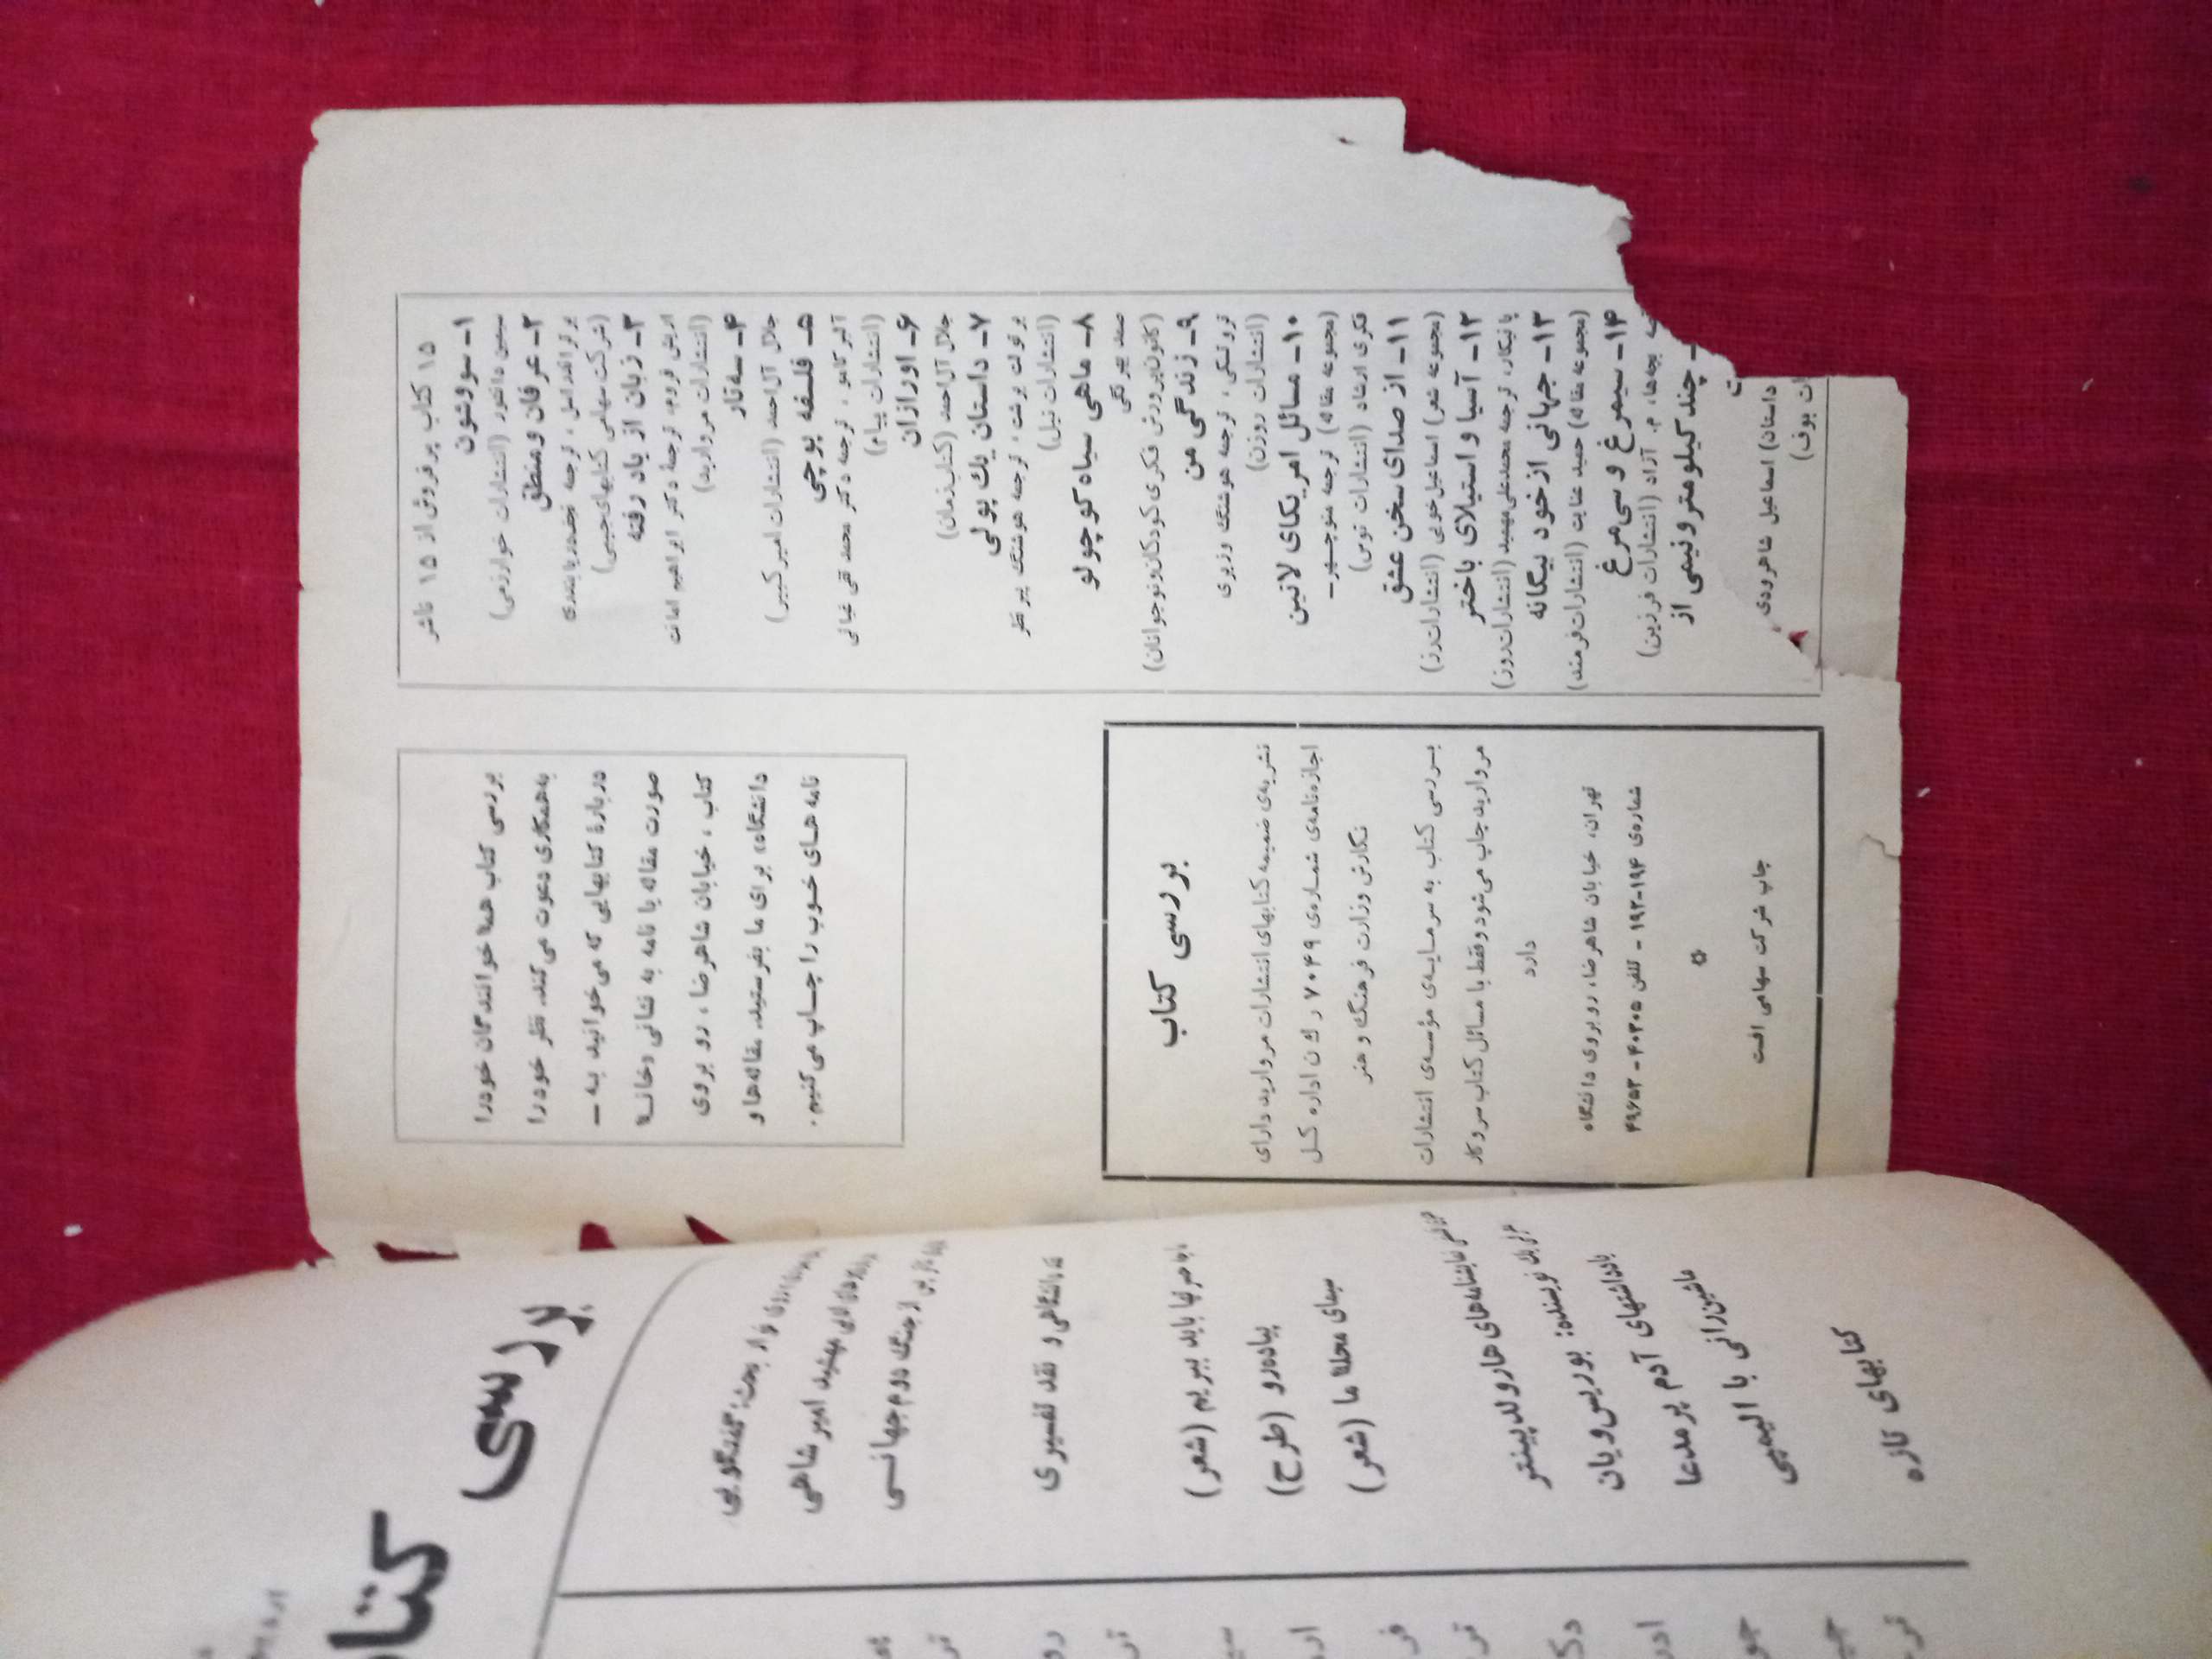 ۱۵ کتاب پرفروش از ۱۵ ناشر
۱- سووشون
سیمین دانشور (انتشارات خوارزمی)
۲- عرفان و منطق
برتراند راسل، ترجمه نجف دریابندری
(شرکت سهامی کتابهای جیبی)
۳- زبان از یاد رفته
اریش فروم، ترجمهٔ دکتر ابراهیم امانت
(انتشارات مروارید)
۴- سه‌تار
جلال آل‌احمد (انتشارات امیرکبیر)
۵- فلسفه پوچی
آلبر کامو، ترجمه دکتر محمد تقی غیاثی
(انتشارات پیام)
۶- اورازان
جلال آل‌احمد (کتاب زمان)
۷- داستان یک پولی
برتولت برشت، ترجمه هوشنگ پیرنظر
(انتشارات نیل)
۸- ماهی سیاه کوچولو
صمد بهرنگی
(کانون پرورش فکری کودکان و نوجوانان)
۹- زندگی من
تروتسکی، ترجمه هوشنگ وزیری
(انتشارات روزن)
۱۰- مسائل امریکای لاتین
(مجموعه مقاله) ترجمه منوچهر-
فکری ارشاد (انتشارات توس)
۱۱- از صدای سخن عشق
(مجموعه شعر) اسماعیل خویی (انتشارات رز)
۱۲- آسیا و استیلای باختر
پانیکار، ترجمه محمدعلی مهمید (انتشارات روز)
۱۳- جهانی از خود بیگانه
(مجموعه مقاله) حمید عنایت (انتشارات فرمند)
۱۴- سیمرغ و سی‌مرغ
بچه‌ها، م. آزاد (انتشارات فرزین)
چند کیلومتر و نیمی از
داستان) اسماعیل شاهرودی
بوف)
بررسی کتاب همه خوانندگان خود را
به همکاری دعوت می‌کند. نظر خود را
دربارهٔ کتابهایی که می‌خوانید به -
صورت مقاله یا نامه به نشانی «خانه
کتاب، خیابان شاهرضا، رو بروی
دانشگاه» برای ما بفرستید. مقاله‌ها و
نامه های خوب را چاپ می‌کنیم.
بررسی کتاب
نشریه‌ی ضمیمه کتابهای انتشارات مروارید دارای
اجازه‌نامه‌ی شماره‌ی ۷۰۴۹ ر ك ن اداره کل
نگارش وزارت فرهنگ و هنر
بررسی کتاب به سرمایه‌ی مؤسسه‌ی انتشارات
مروارید چاپ می‌شود و فقط با مسائل کتاب سروکار
دارد
تهران، خیابان شاهرضا، روبروی دانشگاه
شماره‌ی ۱۹۴-۱۹۲ - تلفن ۴۰۳۰۵ - ۴۹۶۵۲
چاپ شرکت سهامی افست
بررسی
کتاب
بحث: گفتگویی
مهشید امیرشاهی
از جنگ دوم جهانی
و نقد تفسیری
باید ببریم (شعر)
پیاده‌رو (طرح)
سیمای محله ما (شعر)
نمایشنامه‌های هارولد پینتر
نویسنده: بوریس ویان
یادداشتهای آدم پرمدعا
ماشین‌رانی با المپی
کتابهای تازه